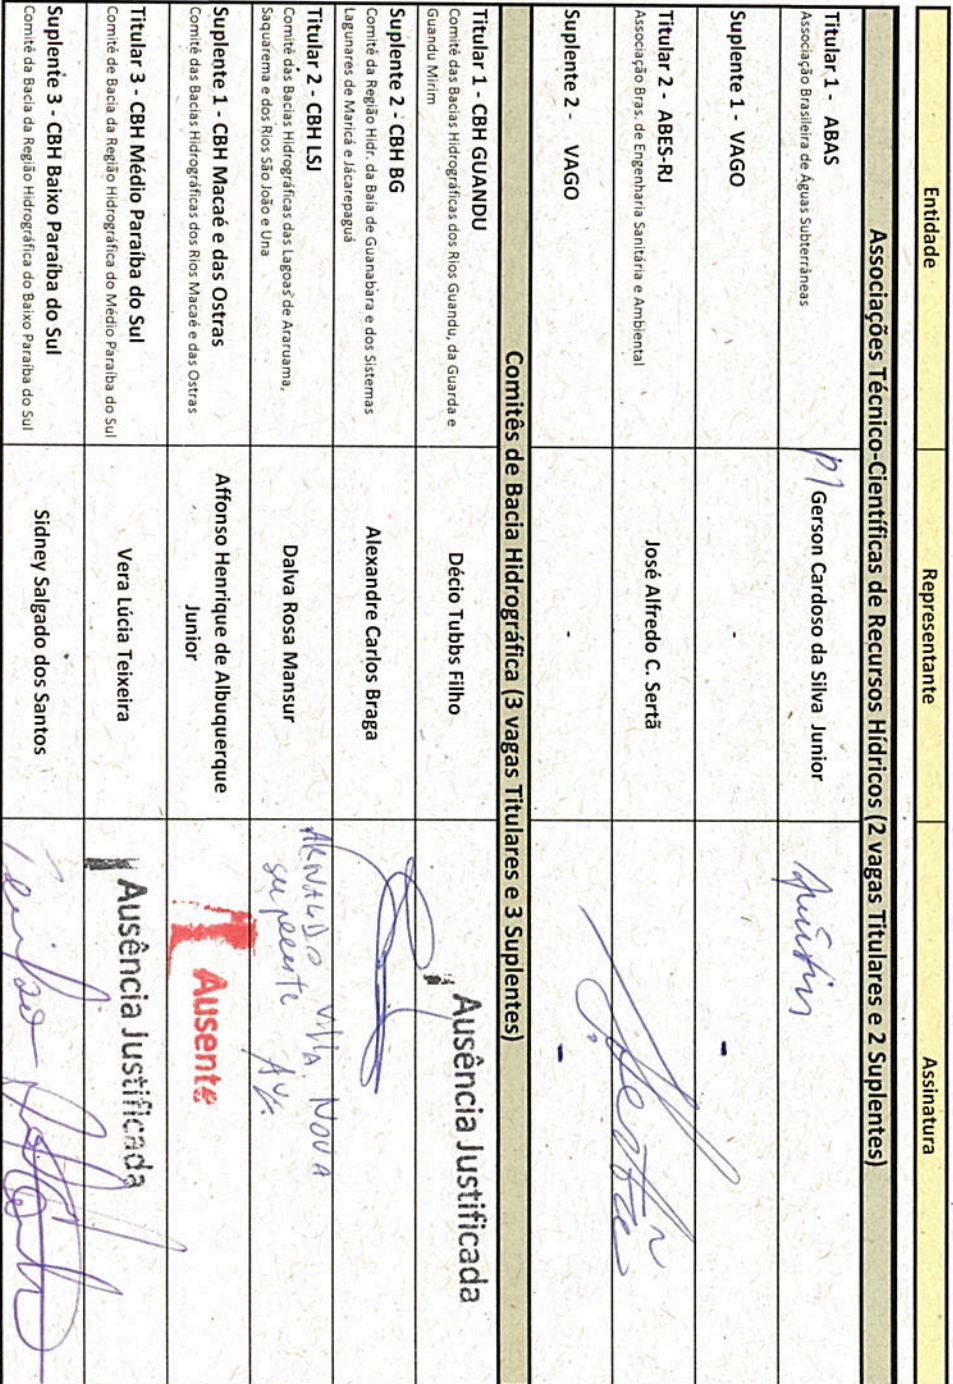 Entidade Representante Assinatura
Associações Técnico-Científicas de Recursos Hídricos (2 vagas Titulares e 2 Suplentes)
Titular 1 - ABAS
Associação Brasileira de Águas Subterrâneas
P/ Gerson Cardoso da Silva Junior
Suplente 1 - VAGO
-
-
Titular 2 - ABES-RJ
Associação Bras. de Engenharia Sanitária e Ambiental
José Alfredo C. Sertã
Suplente 2 - VAGO
-
-
Comitês de Bacia Hidrográfica (3 vagas Titulares e 3 Suplentes)
Titular 1 - CBH GUANDU
Comitê das Bacias Hidrográficas dos Rios Guandu, da Guarda e
Guandu Mirim
Décio Tubbs Filho
Ausência Justificada
Suplente 2 - CBH BG
Comitê da Região Hidr. da Baia de Guanabara e dos Sistemas
Lagunares de Maricá e Jácarepaguá
Alexandre Carlos Braga
Titular 2 - CBH LSJ
Comitê das Bacias Hidrográficas das Lagoas de Araruama,
Saquarema e dos Rios São João e Una
Dalva Rosa Mansur
ARNALDO VILA NOVA
suplente
Suplente 1 - CBH Macaé e das Ostras
Comitê das Bacias Hidrográficas dos Rios Macaé e das Ostras
Affonso Henrique de Albuquerque
Junior
Ausente
Titular 3 - CBH Médio Paraíba do Sul
Comitê de Bacia da Região Hidrográfica do Médio Paraíba do Sul
Vera Lúcia Teixeira
Ausência Justificada
Suplente 3 - CBH Baixo Paraíba do Sul
Comitê da Bacia da Região Hidrográfica do Baixo Paraíba do Sul
Sidney Salgado dos Santos